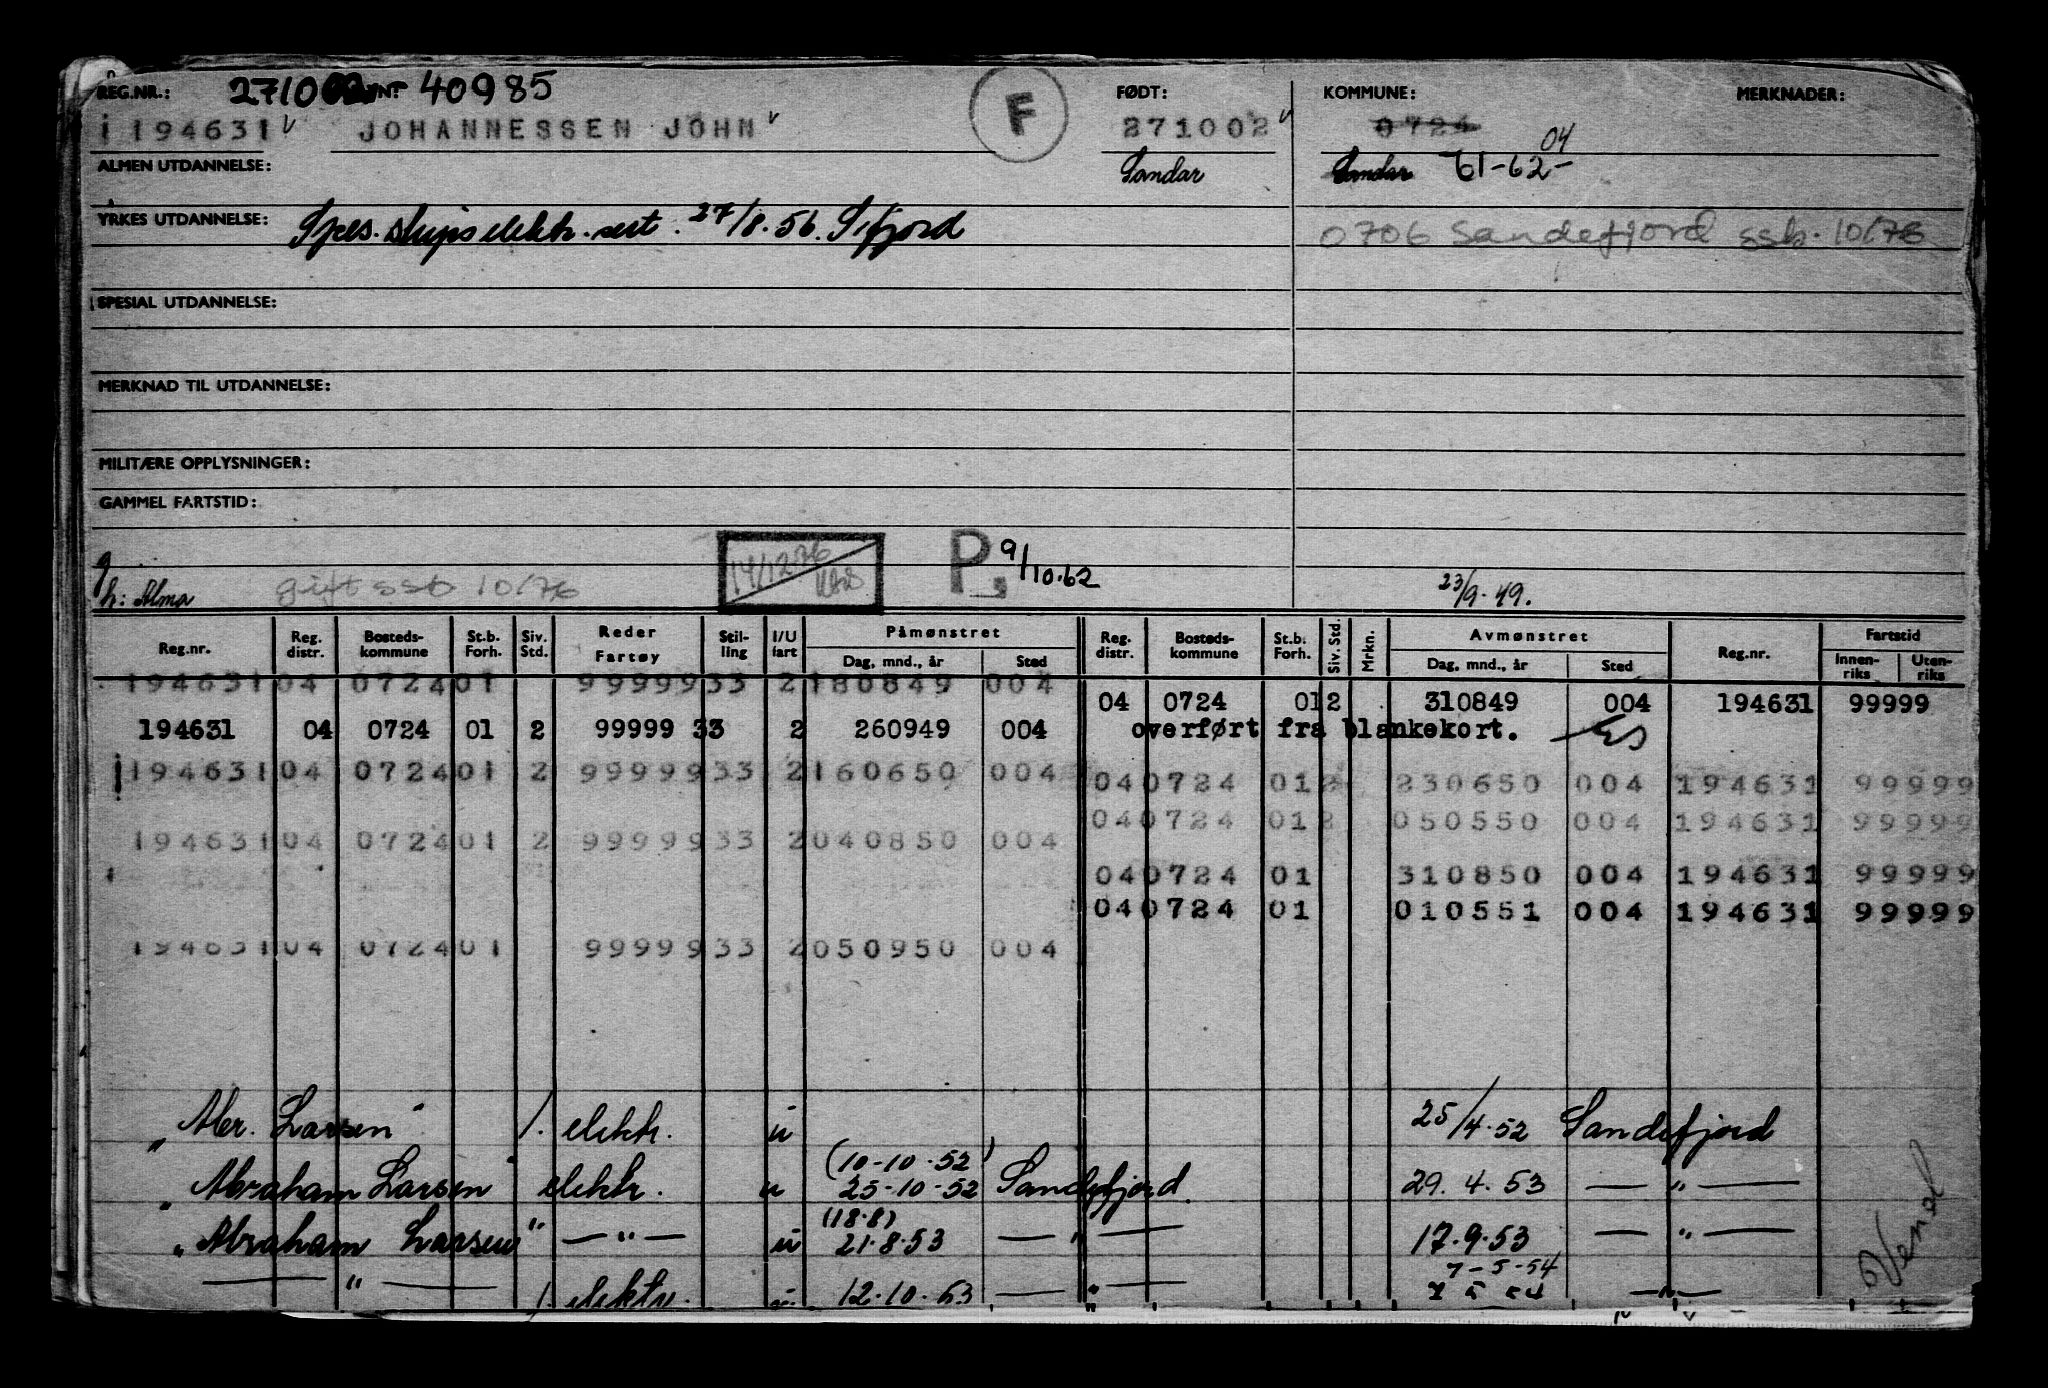 REG.NR.: 271002 NT 40985 FØDT: KOMMUNE: MERKNADER:
194631 JOHANNESSEN JOHN F 271002 0724
04
ALMEN UTDANNELSE: Sandar Sandar 61-62-
YRKES UTDANNELSE: Spes. skipselektr. sert. 27/8.56. S.fjord
0706 Sandefjord ssb. 10/76
SPESIAL UTDANNELSE:
MERKNAD TIL UTDANNELSE:
MILITÆRE OPPLYSNINGER:
GAMMEL FARTSTID:
g
h: Alma gift ssb 10/76 14/12-76 P. 9/10.62 23/9.49.
Reg.nr. Reg. distr. Bosteds-kommune St.b. Forh. Siv. Std. Reder Fartøy Stil-ling I/U fart Påmønstret Dag, mnd., år Sted Reg. distr. Bosteds-kommune St.b. Forh. Siv. Std. Mrkn. Avmønstret Dag, mnd., år Sted Reg.nr. Fartstid Innen-riks Uten-riks
194631 04 0724 01 99999 33 2 180849 004
04 0724 01 2 310849 004 194631 99999
194631 04 0724 01 2 99999 33 2 260949 004 overført fra blankekort.
194631 04 0724 01 2 99999 33 2 160650 004
04 0724 01 2 230650 004 194631 99999
04 0724 01 2 050550 004 194631 99999
194631 04 0724 01 2 99999 33 2 040850 004
04 0724 01 310850 004 194631 99999
04 0724 01 010551 004 194631 99999
194631 04 0724 01 99999 33 2 050950 004
"Abr. Larsen" 1. elektr. u 25/4.52 Sandefjord
(10-10-52)
"Abraham Larsen" elektr. u 25-10-52 Sandefjord. 29.4.53 — " —
(18.8)
"Abraham Larsen" — " — u 21.8.53 — " — 17.9.53 — " —
7-5-54
— " — 1. elektr. u. 12.10.53 — " — 7 5 54 — " —
Vend